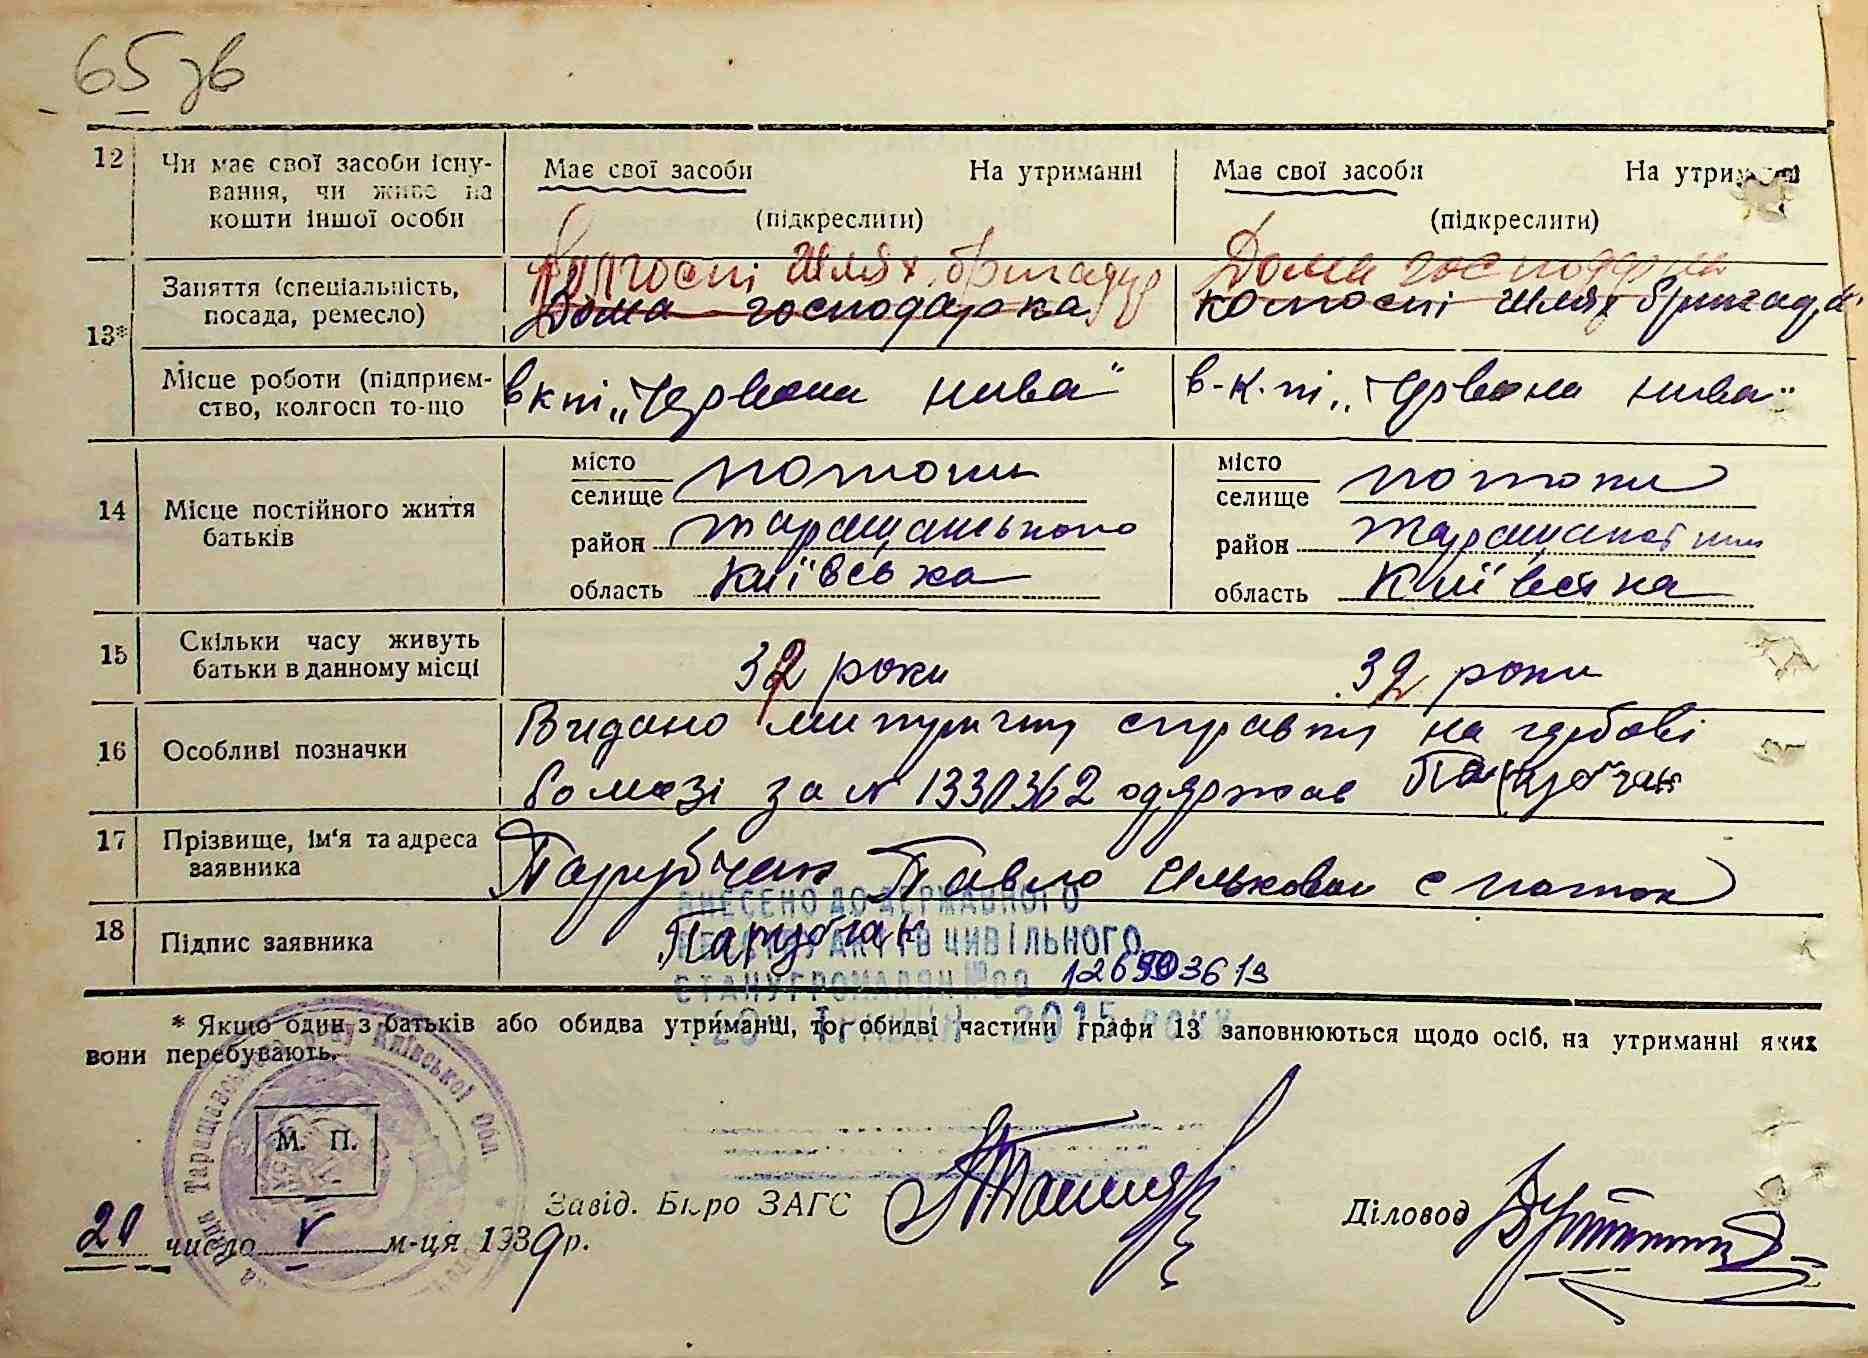 65 зв
12 Чи має свої засоби існування, чи живе на кошти іншої особи
Має свої засоби На утриманні
(підкреслити)
Має свої засоби На утриманні
(підкреслити)
13*
Заняття (спеціальність, посада, ремесло)
Колгоспі Шлях бригадир
Дома господарка
Дома господарка
колгоспі Шлях бригад
Місце роботи (підприємство, колгосп то-що
в к пі „Червона нива"
в-к. пі „Червона нива"
14 Місце постійного життя батьків
місто
селище Потоки
район Таращанського
область Київська
місто
селище Потоки
район
область Київська
15 Скільки часу живуть батьки в данному місці
32 роки
32 роки
16 Особливі позначки
Видано справку на гербові
бомазі за № 1330362 одержав Парубчак
17 Прізвище, ім'я та адреса заявника
Парубчак Павло Ількович с Поток
18 Підпис заявника
Парубчак
ВНЕСЕНО ДО ДЕРЖАВНОГО
РЕЄСТРУ АКТІВ ЦИВІЛЬНОГО
СТАНУ ГРОМАДЯН №00
20 ТРАВНЯ 2015 РОКУ
* Якщо один з батьків або обидва утриманці, то обидві частини графи 13 заповнюються щодо осіб, на утриманні яких
вони перебувають.
Таращанського р-ну Київської Обл.
М. П.
Завід. Бюро ЗАГС
Діловод
20 число V м-ця 1939 р.